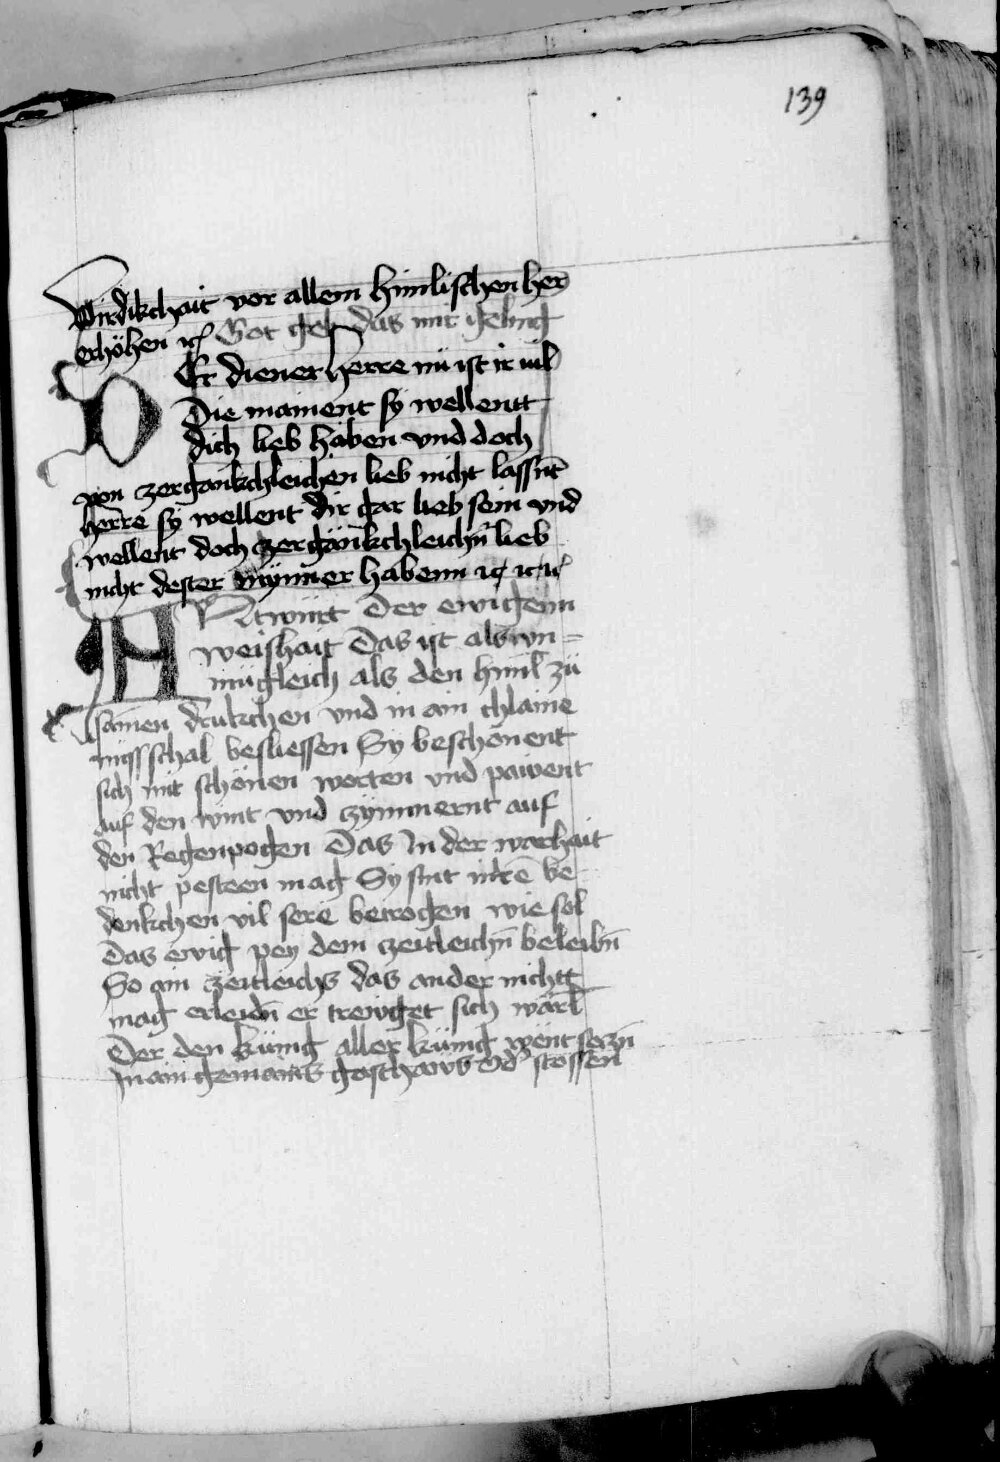 139
Wirdikchait vor allem himlischen her
erhöhen ec Got geb das mir geling
DEr diener herre nu ist ir vil
Die mainent sy wellentt
dich lieb haben vnd doch
von zergankchleichen lieb nicht lassnt
herre sy wellent dir gar lieb sein vnd
wellent doch zergänkchleichn lieb
nicht dester mynner habenn ec ec ec
ANtwurt Der ewigenn
weishait Das ist als vn=
mügleich als den himl zü
samen drukchen vnd in ain chlaine
nussschal besliessen Sy beschönent
sich mit schönen worten vnd pawent
auf den wint vnd zymmernt auf
den Regenpogen Das In der warhait
nicht pesteen mag Sy sint in be
denkchen vil sere betrogen wie sol
Das ewig pey dem zeitleichn beleibn
So ain zeitleichs das ander nichtt
mag erleidn er trewget sich wärl
Der den künig aller künig went seczn
In ain gemains gasthaws od stossen